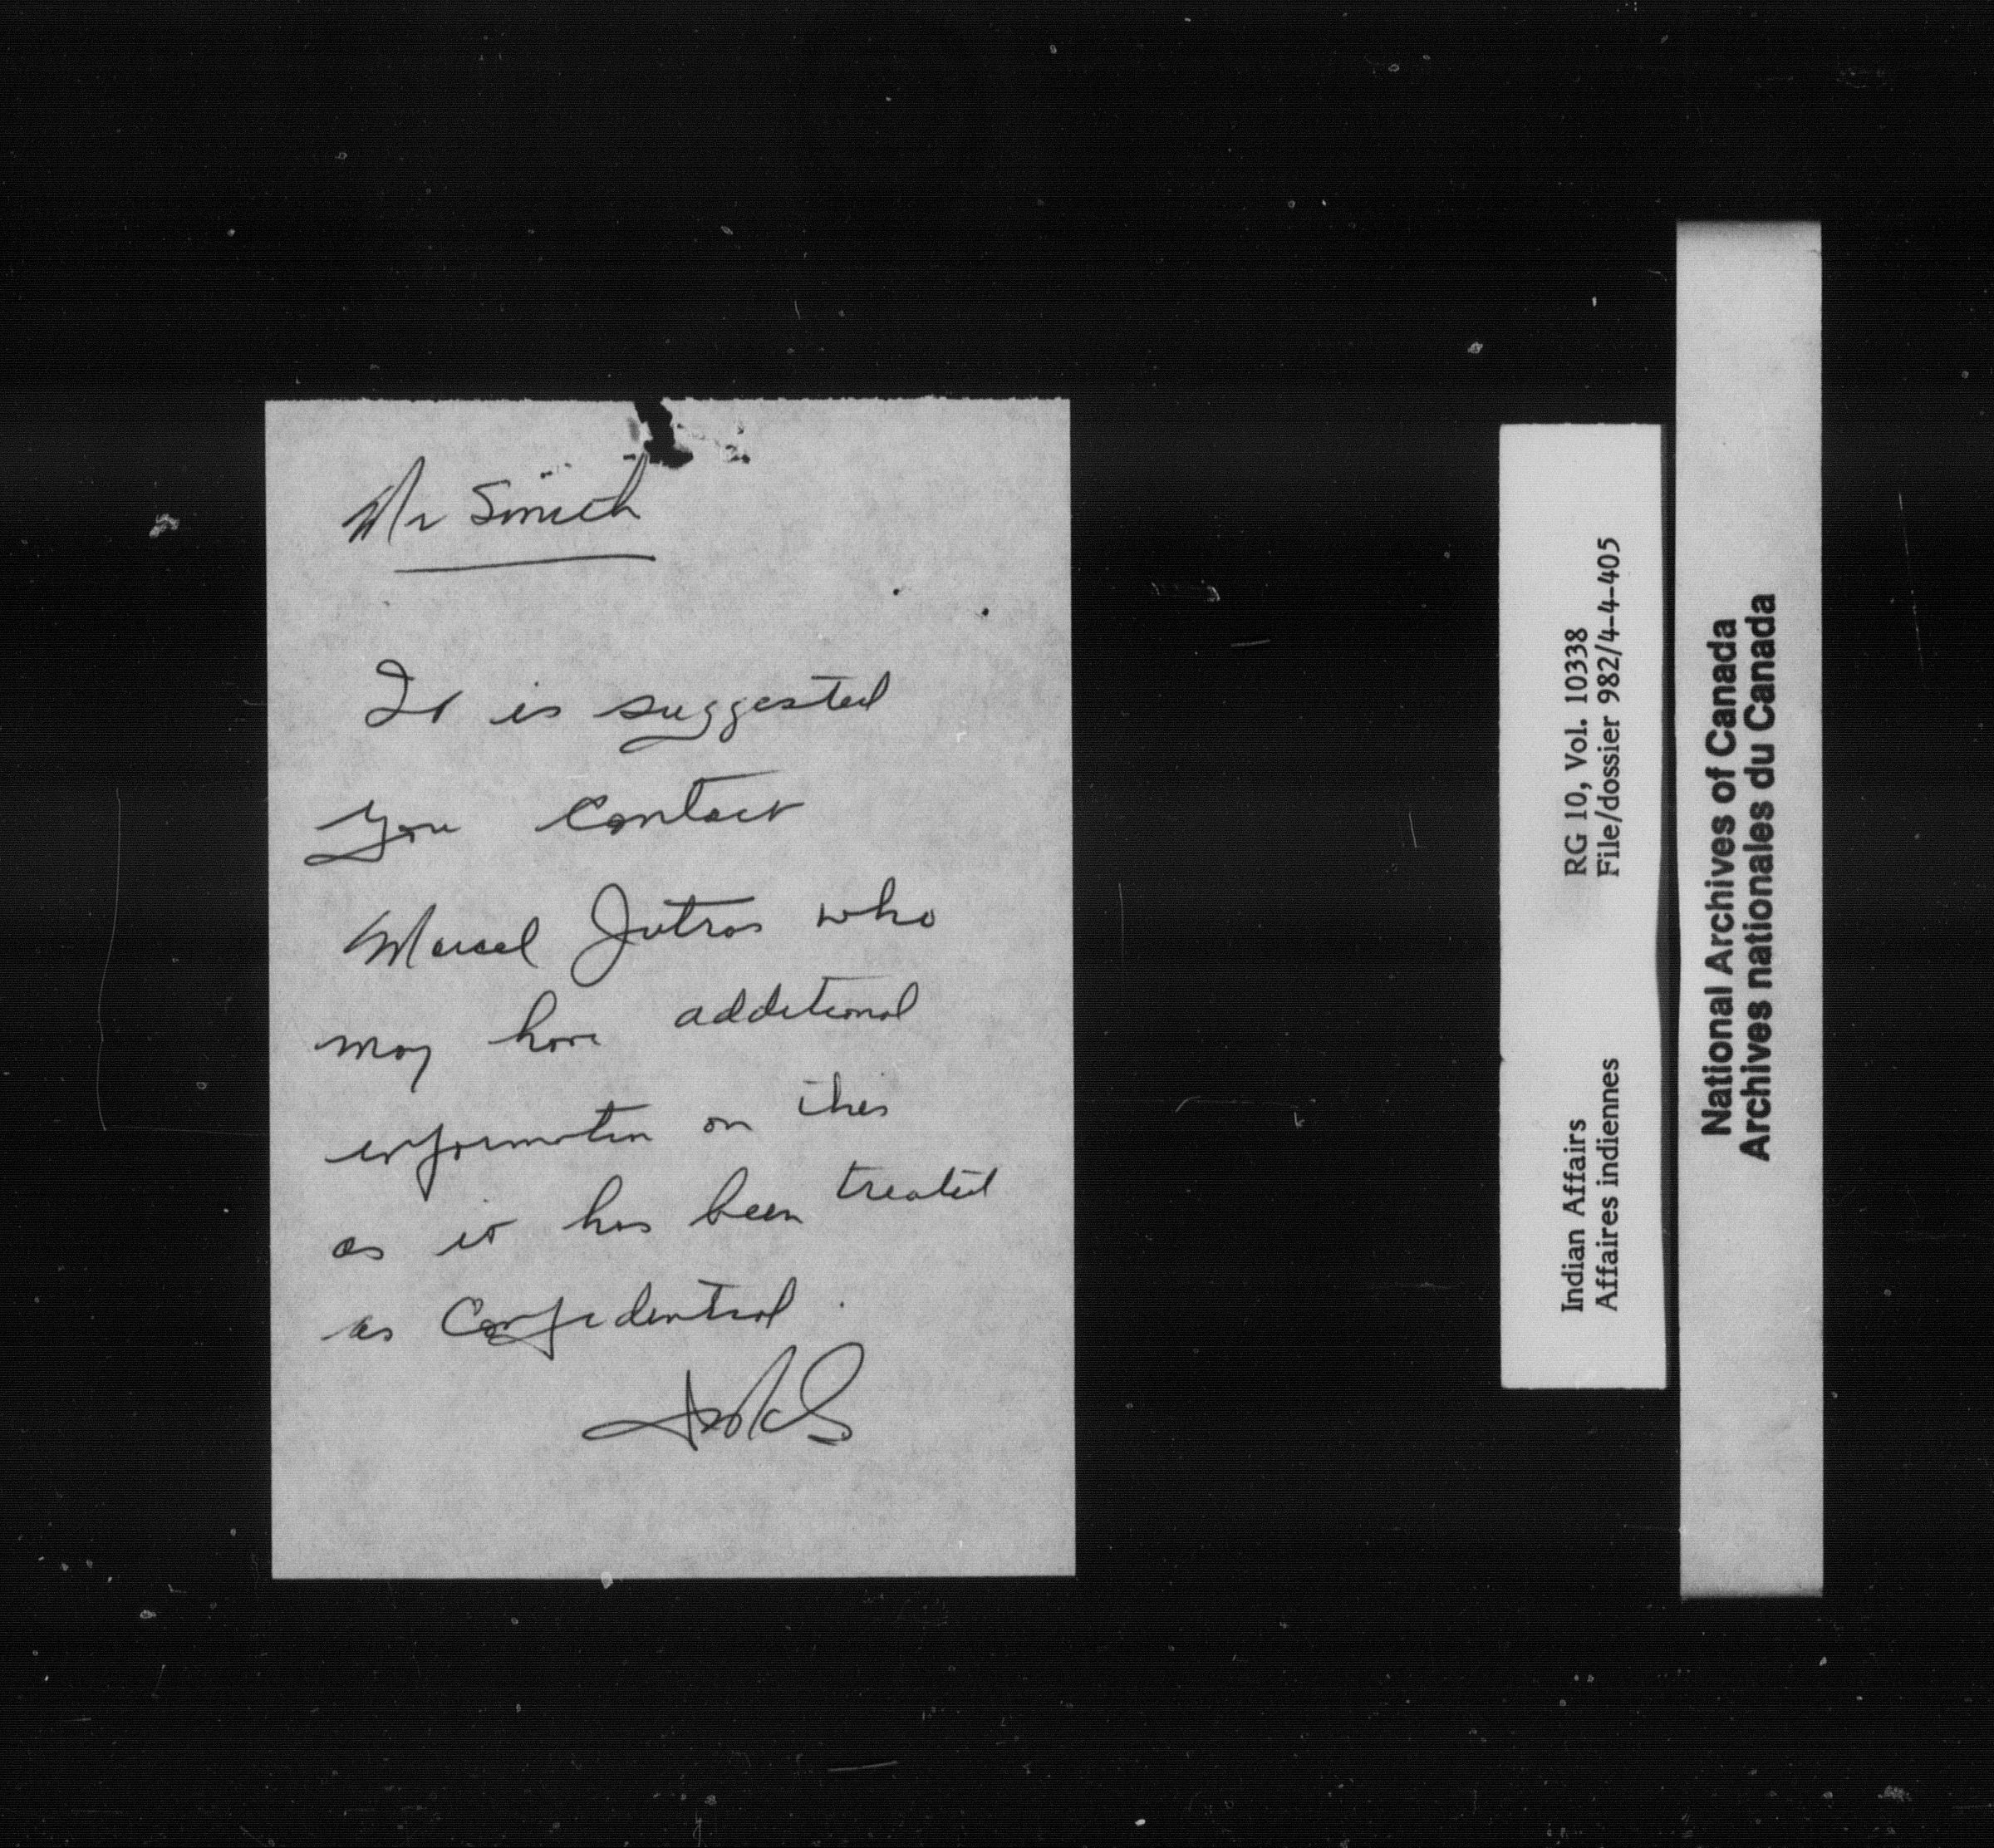 Mr Smith
It is suggested
you contact
Marcel Jutras who
may have additional
information on this
as it has been treated
as Confidential.
RG 10, Vol. 10338
File/dossier 982/4-4-405
Indian Affairs
Affaires indiennes
National Archives of Canada
Archives nationales du Canada